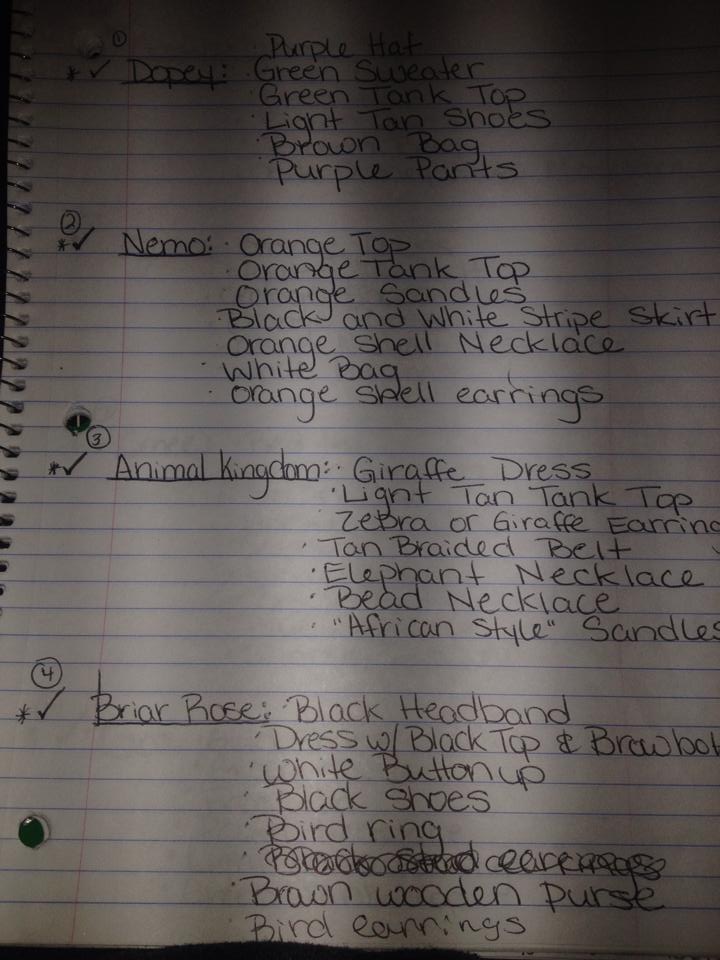 ① Purple Hat
*✓ Dopey: Green Sweater
Green Tank Top
· Light Tan Shoes
· Brown Bag
· Purple Pants
②
*✓ Nemo: · Orange Top
· Orange Tank Top
· Orange Sandles
· Black and White Stripe Skirt
· Orange Shell Necklace
· White Bag
· Orange shell earrings
③
*✓ Animal Kingdom: · Giraffe Dress
· Light Tan Tank Top
· Zebra or Giraffe Earring
· Tan Braided Belt
· Elephant Necklace
· Bead Necklace
· "African Style" Sandles
④
*✓ Briar Rose: · Black Headband
· Dress w/ Black Top &
· White Button up
· Black Shoes
· Bird ring
· earrings
· Brown wooden purse
· Bird earrings